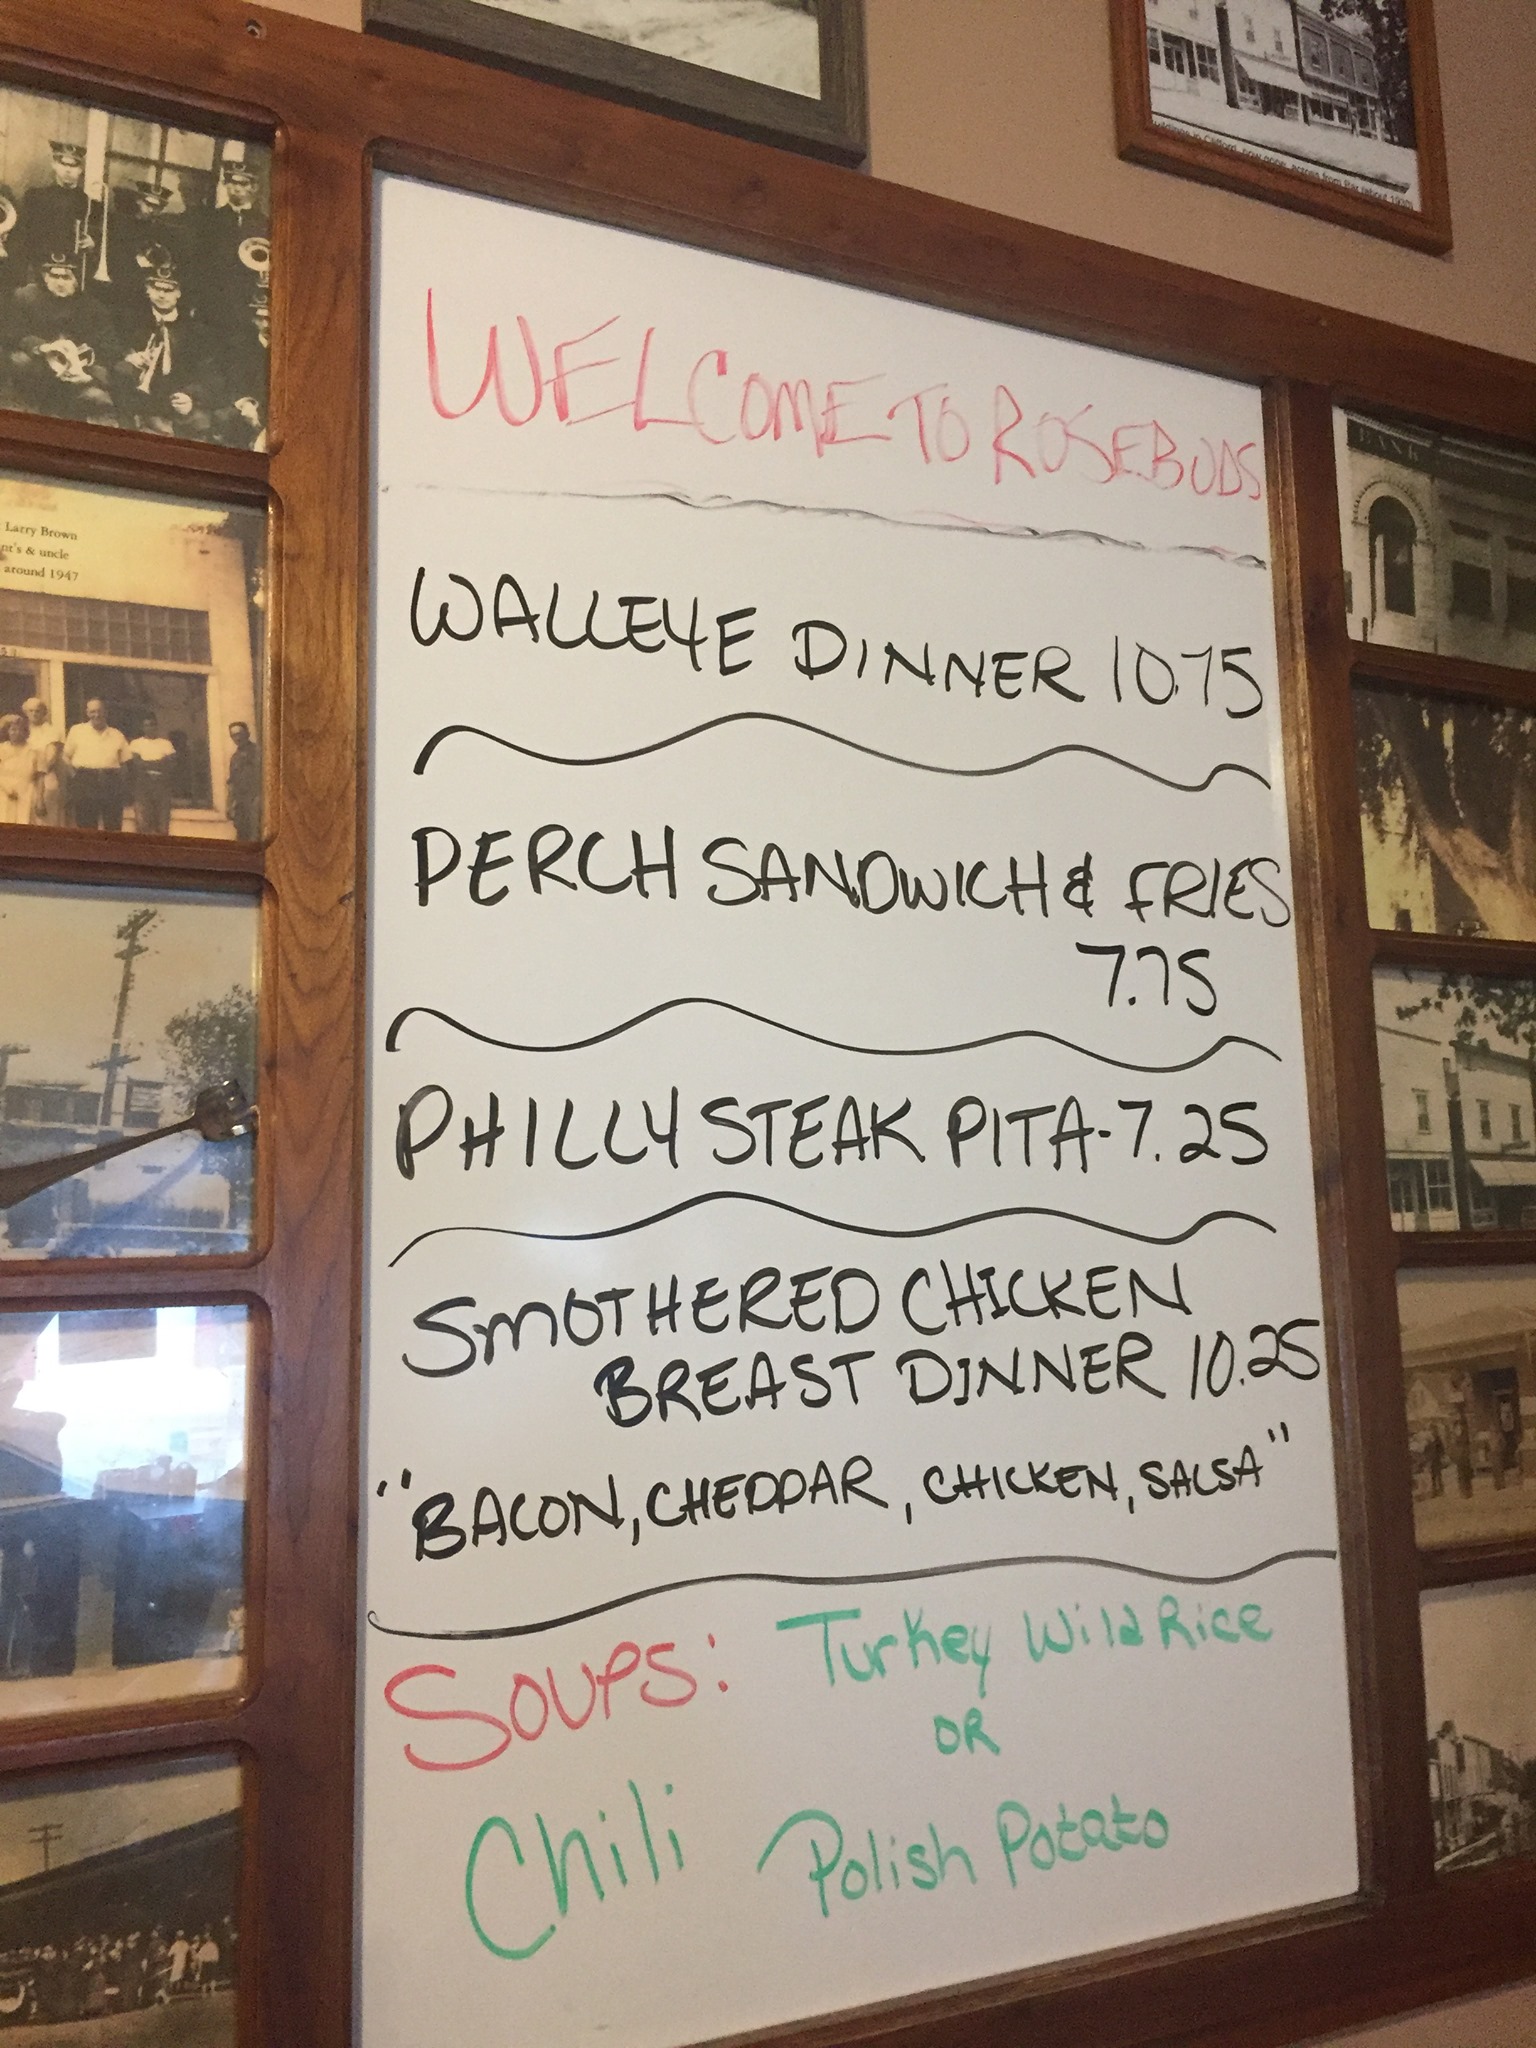 WELCOME TO ROSEBUDS
WALLEYE DINNER 10.75
PERCH SANDWICH & FRIES
7.75
PHILLY STEAK PITA-7.25
SMOTHERED CHICKEN
BREAST DINNER 10.25
"BACON, CHEDDAR, CHICKEN, SALSA"
SOUPS: Turkey Wild Rice
OR
Chili Polish Potato
Larry Brown
& uncle
around 1947
in Clifford, now 2006, across from Bar (about 1930)
BANK